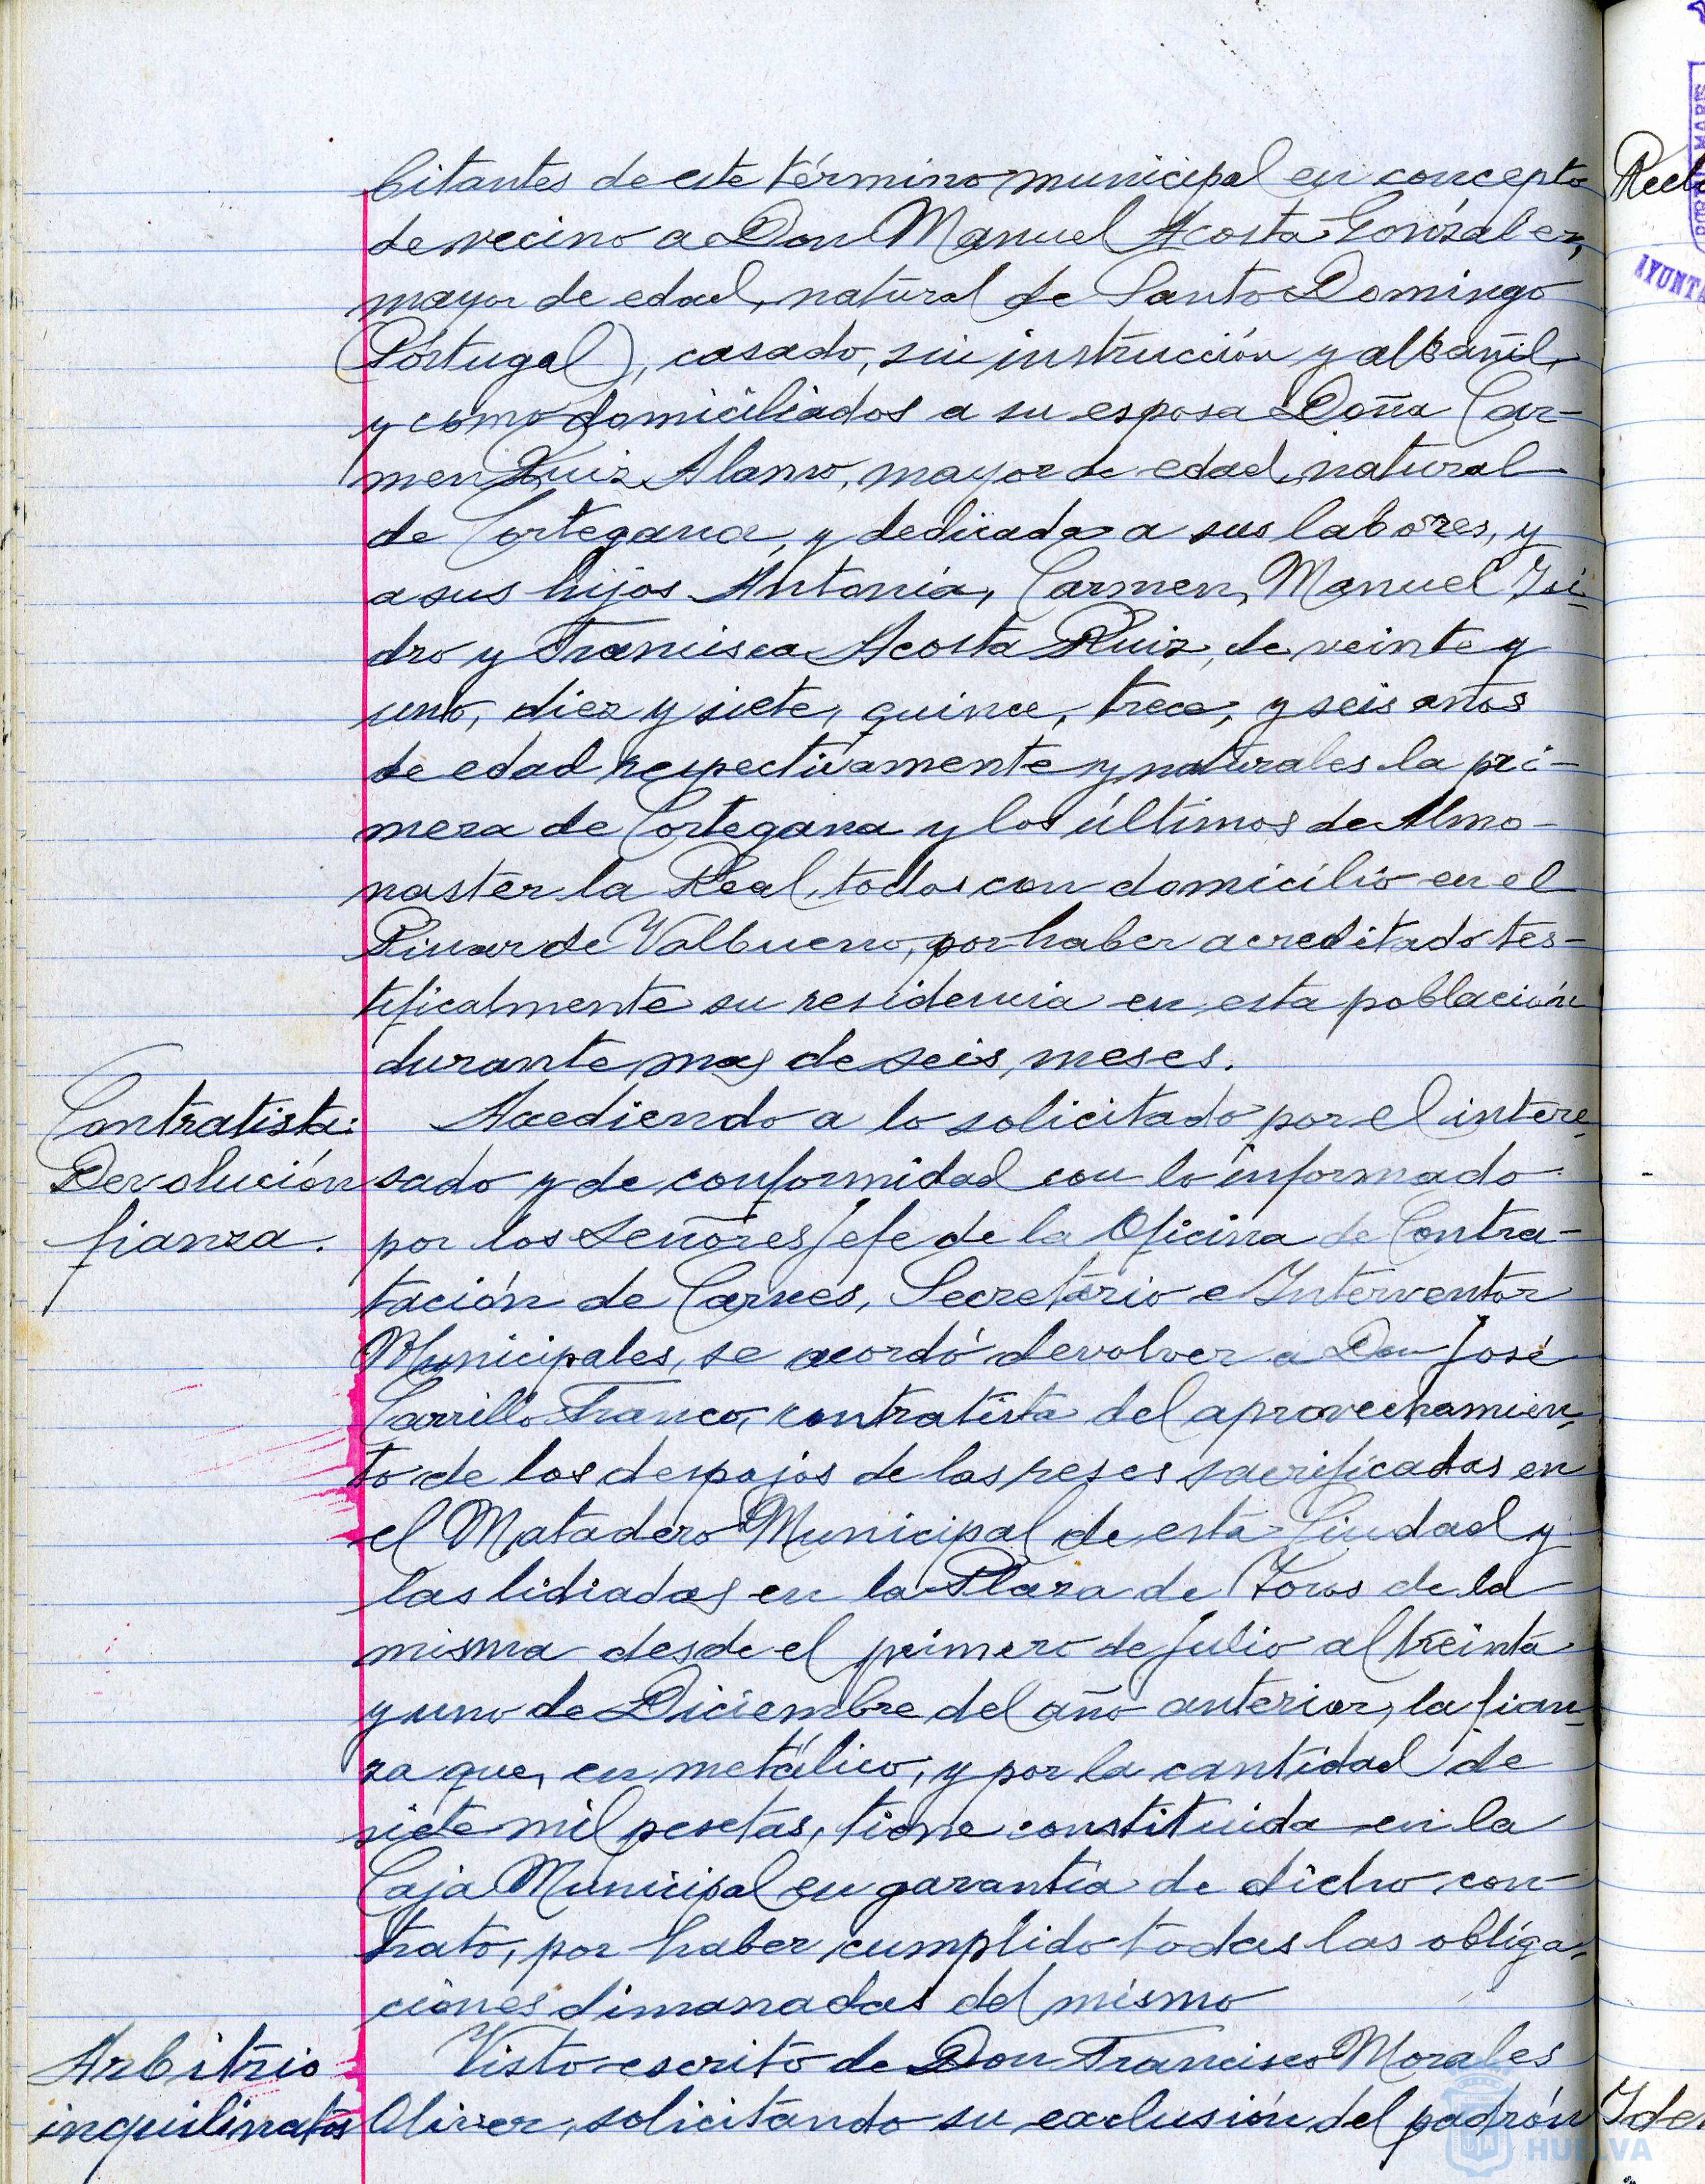 bitantes de este término municipal en concepto
de vecino a Don Manuel Acosta Gonzalez,
mayor de edad, natural de Santo Domingo
(Portugal), casado, sin instrucción y albañil,
y como domiciliados a su esposa Doña Car-
men Ruiz Alamo, mayor de edad, natural
de Cortegana, y dedicada a sus labores, y
a sus hijos Antonia, Carmen, Manuel Isi-
dro y Francisca Acosta Ruiz, de veinte y
uno, diez y siete, quince, trece, y seis años
de edad respectivamente y naturales la pri-
mera de Cortegana y los últimos de Almo-
naster la Real, todos con domicilio en el
Pinar de Valbueno, por haber acreditado tes-
tificalmente su residencia en esta población
durante mas de seis meses.
Contratista:
Devolución
fianza.
Accediendo a lo solicitado por el intere-
sado y de conformidad con lo informado
por los Señores Jefe de la Oficina de Contra-
tación de Carnes, Secretario e Interventor
Municipales, se acordó devolver a Don José
Carrillo Franco, contratista del aprovechamien-
to de los despojos de las reses sacrificadas en
el Matadero Municipal de esta Ciudad y
las lidiadas en la Plaza de Toros de la
misma desde el primero de Julio al treinta
y uno de Diciembre del año anterior, la fian-
za que, en metálico, y por la cantidad de
siete mil pesetas, tiene constituida en la
Caja Municipal en garantía de dicho con-
trato, por haber cumplido todas las obliga-
ciones dimanadas del mismo
Arbitrio
inquilinatos
Visto escrito de Don Francisco Morales
Oliver, solicitando su exclusión del padrón
HUELVA